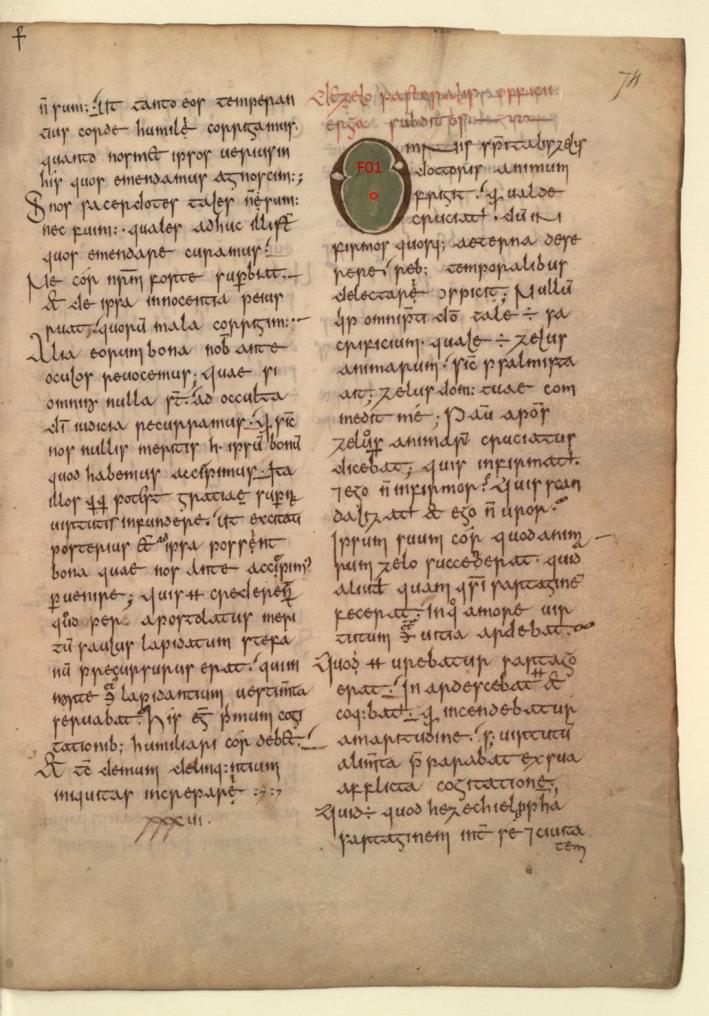 ☧
n̄ sum; Ut tanto eos temperan
tius corde humilẹ corrigamus.
quanto nosmet ipsos uerius in
his quos emendamus agnoscim;
S nos sacerdotes tales n̄ erum:
nec fuim: quales adhuc illi st̄
quos emendare curamus;
Ne cor nr̄m forte suꝑbiat.
& de ipsa innocentia peius
ruat; quorū mala corrigim:
Alia eorum bona nob̄ ante
oculos reuocemus; quae si
omnino nulla st̄. ad occulta
dī iudicia recurramus. q sic
nos nullis meritis h. ipsū bonū
quod habemus accipimus. Ita
illos qq potest gratiae suꝑn
uirtutis infundere. Ut excitati
posterius & ipsa possent
bona quae nos ante accipim
ꝑuenire; quis ᚔ crederet
quod per apostolatus meri
tū saulus lapidatum stefa
nū precursurus erat. qui in
morte lapidantium uestimta
seruabat. His eḡ primum cogi
tationib; humiliari cor debet.
& tc̄ demum delinq:ntium
iniquitas increpare
xxxiii.
74
De zelo pastoralis officii
erga subditos
F01
O mnis spitalis zelus
doctoris animum
frigit. q ualde
cruciat. dū in
firmos quosq; aeterna dese
rere. reb; temporalibus
delectare aspicit; Nullū
qp omnipti dō tale ÷ sa
crificium. quale ÷ zelus
animarum. sic psalmista
ait; zelus dom: tuae com
medit me; Pau apos
zelus animarū cruciatus
dicebat; quis infirmat.
⁊ ego n̄ infirmor. Quis scan
dalizat & ego n̄ uror.
Ipsum suum cor quod anim
rum zelo succederat. quid
aliud quam qsi sartagine
fecerat. In q amore uir
tutum uitia ardebat.
Quod urebatur sartago
erat. In ardescebat &
coq:bat. q incendebatur
amaritudine. s; uirtutū
alimta p̄parabat ex sua
afflicta cogitatione;
Quid÷ quod hezechiel ꝓpha
sartaginem int se ⁊ ciuita
tem